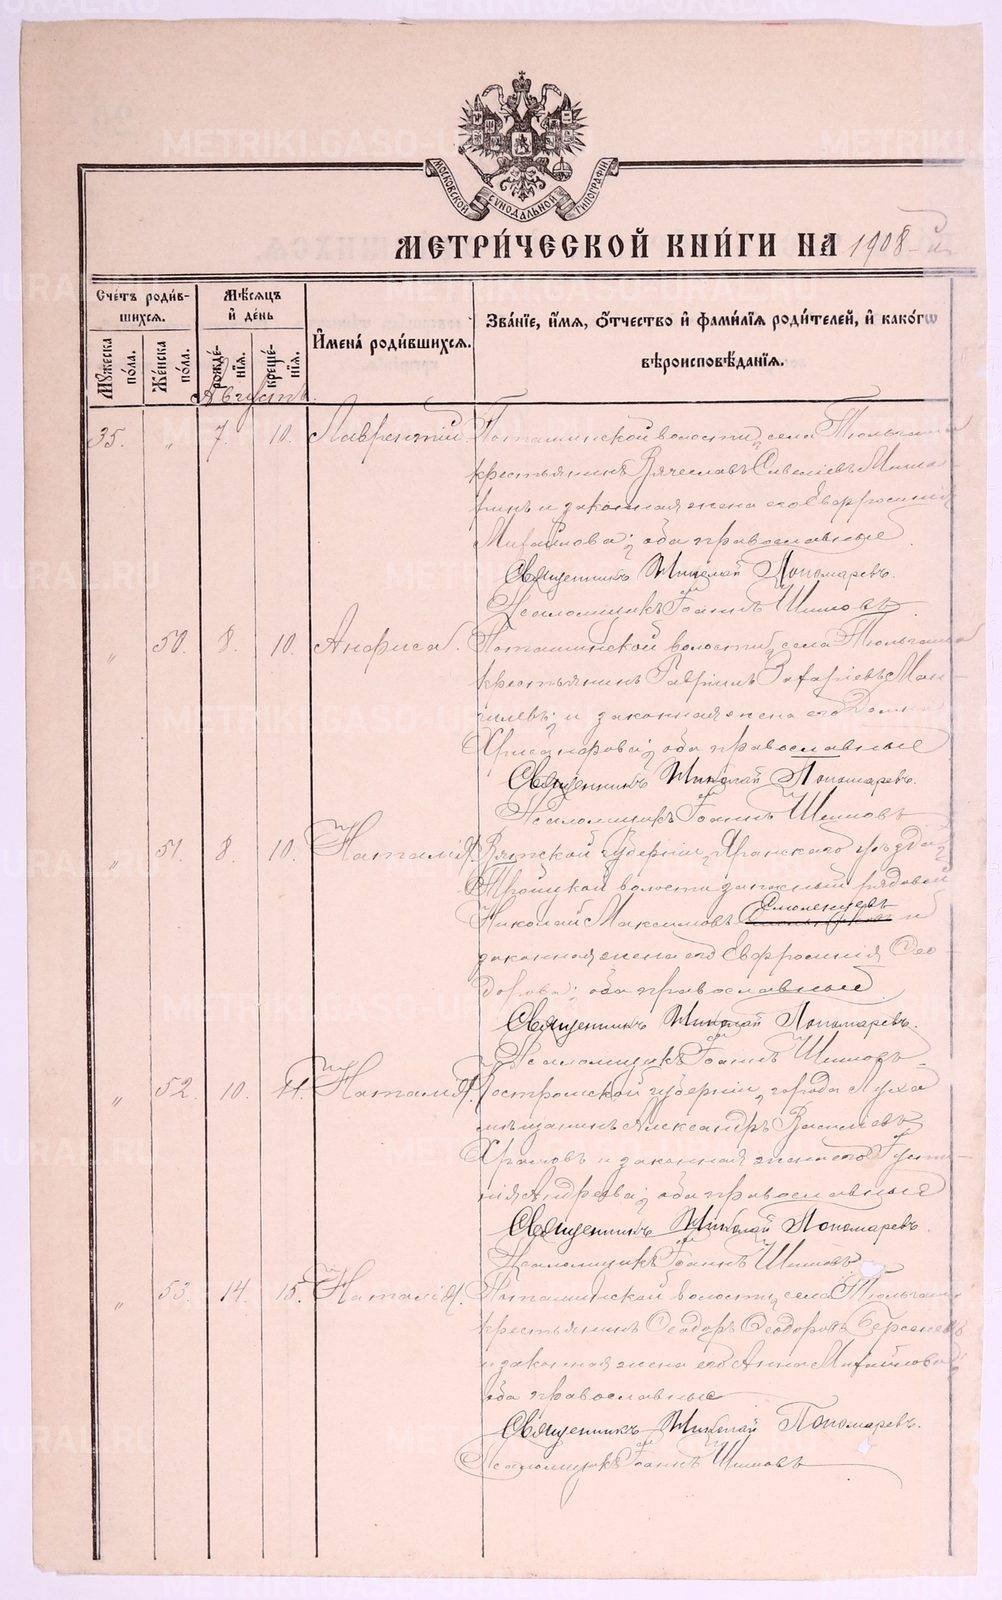 МОСКОВСКОЙ СѴНОДАЛЬНОЙ ТИПОГРАФІИ
МЕТРИ́ЧЕСКОЙ КНИ́ГИ НА 1908-й
Сче́тъ роди́в-
шихся.
Мѣ́сяцъ
и҆ де́нь
И҆мена̀ роди́вшихся.
Зва́нїе, и҆́мя, ѻ҆́тчество и҆ фами́лїя роди́телей, и҆ како́гѡ
вѣроисповѣ́данїя.
Мꙋ́жеска по́ла.
Же́нска по́ла.
рожде́нїя.
креще́нїя.
Августъ.
35. " 7. 10. Лаврентій. Поташинской волости, села Тюльгаша
крестьянинъ Вячеславъ Савеліевъ
и законная жена его Евфросинія
Михайлова; оба православные.
Священникъ Николай Пономаревъ.
Псаломщикъ Іоаннъ Шишовъ
" 50. 8. 10. Анфиса. Поташинской волости, села Тюльгаша
крестьянинъ Гавріилъ Захаріевъ Ман-
гилевъ; и законная жена его Домна
Хрисанфова; оба православные
Священникъ Николай Пономаревъ.
Псаломщикъ Іоаннъ Шишовъ
" 51. 8. 10. Наталія. Вятской губерніи, Яранскаго уѣзда,
Троицкой волости запасный рядовой
Николай Максимовъ Смоленцевъ и
законная жена его Евфросинія Ѳео-
дорова; оба православные.
Священникъ Николай Пономаревъ.
Псаломщикъ Іоаннъ Шишовъ
" 52. 10. 11. Наталія. Костромской губерніи, города Луха
мѣщанинъ Александръ Васильевъ
Храмовъ и законная жена его Іусти-
нія Андреева; оба православные
Священникъ Николай Пономаревъ.
Псаломщикъ Іоаннъ Шишовъ
" 53. 14. 15. Наталія. Поташинской волости, села Тюльгаша
крестьянинъ Ѳеодоръ Ѳеодоровъ Берсеневъ
и законная жена его Анна Михайлова;
оба православные
Священникъ Николай Пономаревъ.
Псаломщикъ Іоаннъ Шишовъ
METRIKI.GASO-URAL.RU